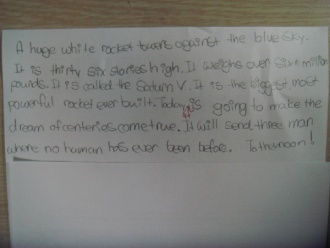 A huge white rocket towers against the blue sky.
It is thirty six stories high. It weighs over six million
pounds. It is called the Saturn V. It is the biggest most
powerful rocket ever built. Today it is going to make the
dream of centeries come true. It will send three man
where no human has ever been before. To the moon!